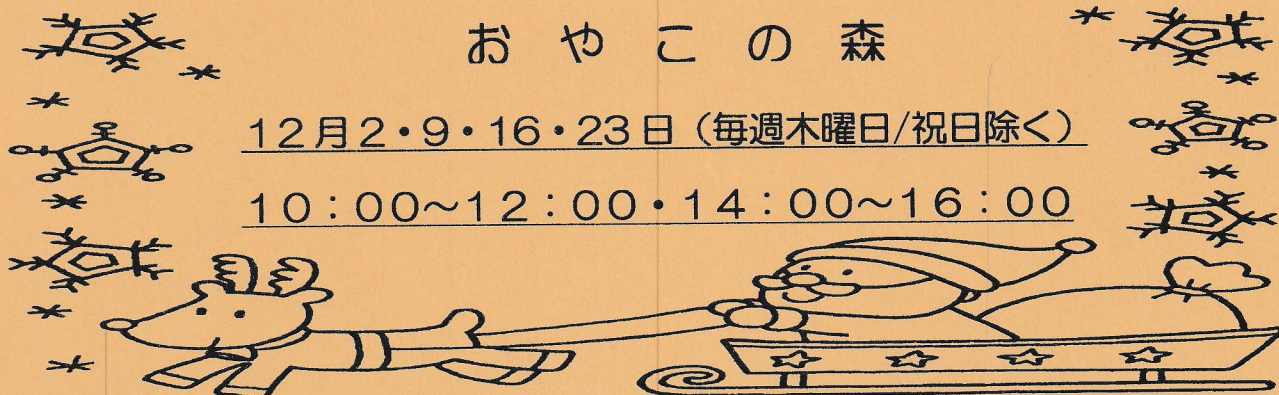 おやこの森
12月2・9・16・23日（毎週木曜日/祝日除く）
10：00～12：00・14：00～16：00